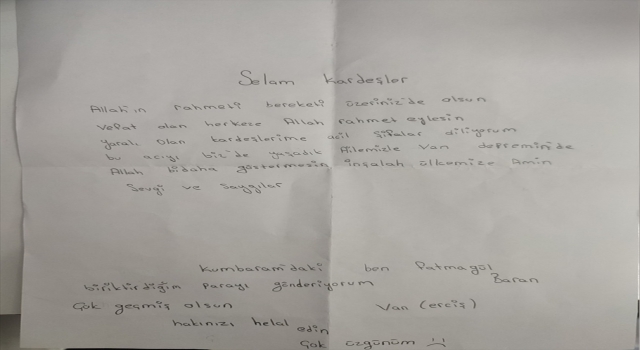 Selam Kardeşler
Allah'ın rahmeti bereketi üzeriniz'de olsun
Vefat olan herkese Allah rahmet eylesin
yaralı olan kardeşlerime acil şifalar diliyorum
bu acıyı biz'de yaşadık Ailemizle Van depremin'de
Allah bidaha göstermesin inşalah ülkemize Amin
Sevgi ve Saygılar
Kumbaram'daki ben Fatmagül Baran
biriktirdiğim Parayı gönderiyorum
Çok geçmiş olsun Van (erciş)
hakınızı helal edin
Çok üzgünüm :(